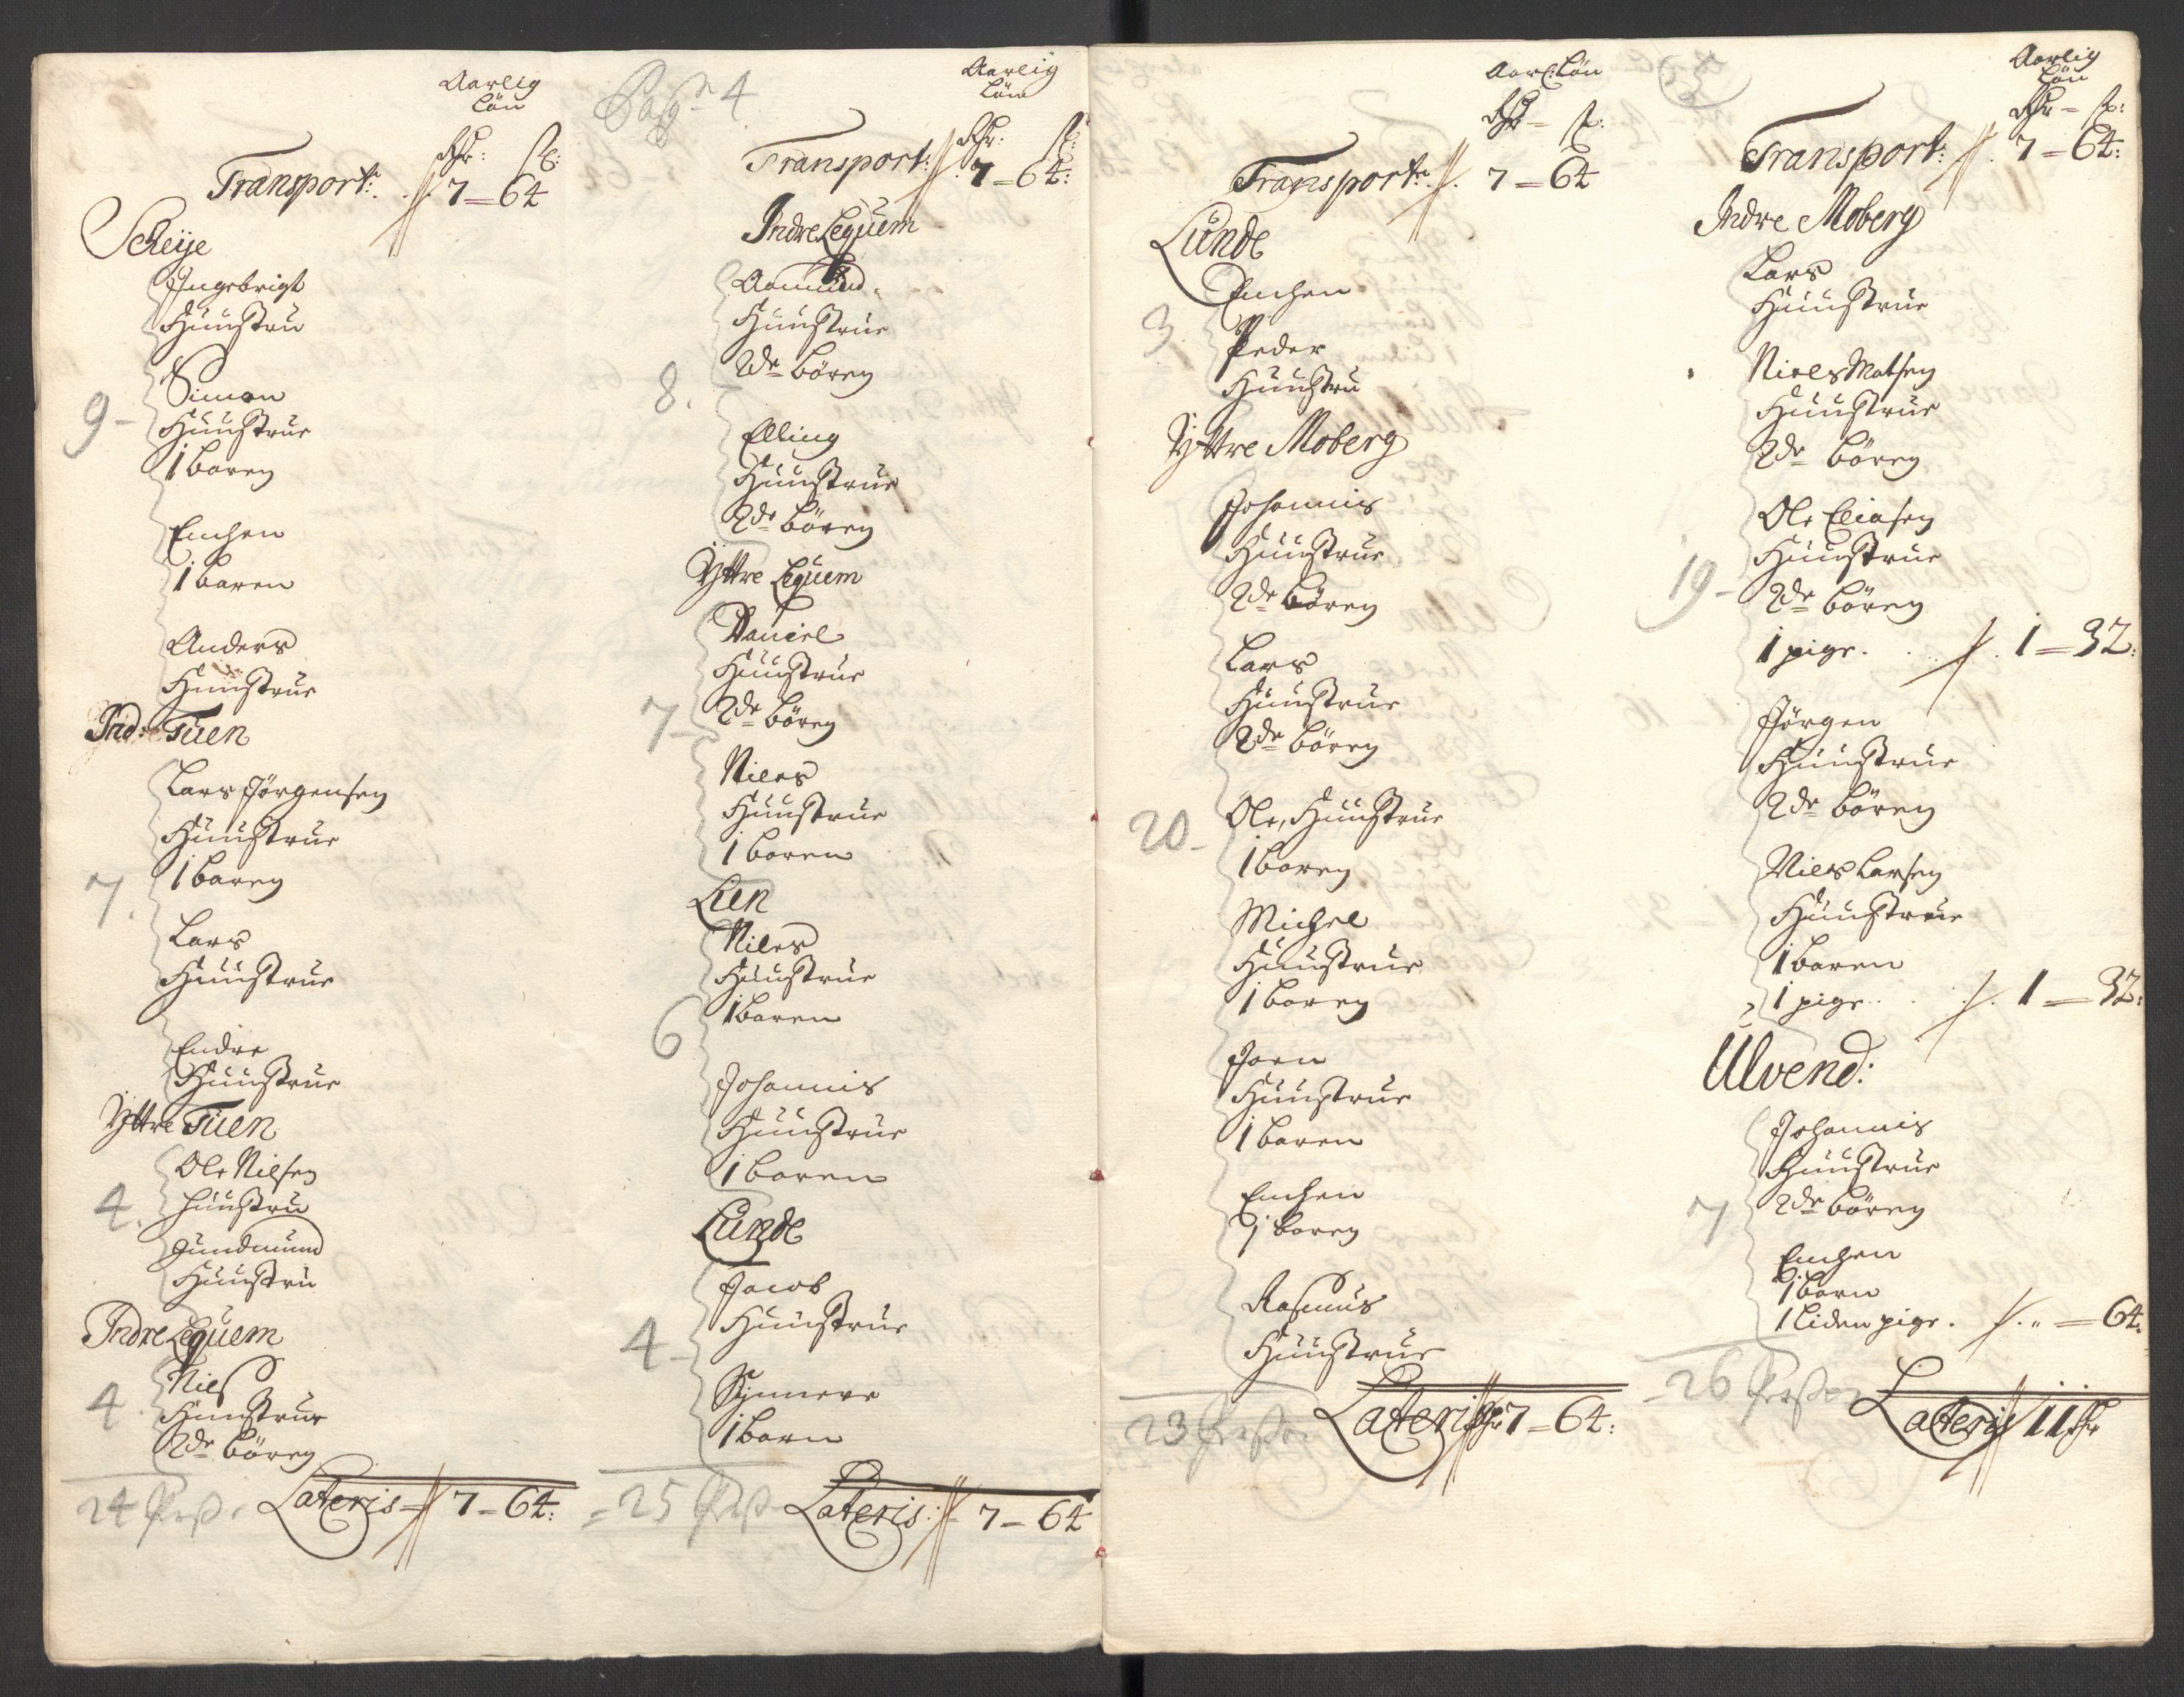 Aarlig
Løn
Rdr: ß:
Transport: 7 = 64
Scheije
Ingebrigt
Huustru
Simon
9 - Huustrue
1 baren
Enchen
1 baren
Anders
Huustrue
Ind: Tuen
Lars Jørgensen
Huustrue
7. 1 baren
Lars
Huustrue
Endre
Huustrue
Yttre Tuen
Ole Nilsen
4. huustru
Gundmund
Huustru
Indre Lequem
Niels
4. Huustrue
2de børen
24 Perß. Lateris = 7 - 64:
Pag 4
Aarlig
Løn
Rdr: ß:
Transport: 7 = 64:
Indre Lequem
Aamund
Huustrue
8. 2de børen
Elling
Huustrue
2de børen
Yttre Lequem
Daniel
Huustrue
7 - 2de børen
Niles
Huustrue
1 baren
Lien
Niles
Huustrue
6 1 baren
Johannis
Huustrue
1 baren
Lunde
Jacob
4 - Huustrue
Synneve
1 barn
25 Perß Lateris: 7 - 64
Aarl: Løn
Rdr = ß:
Transport: 7 = 64
Lunde
Enchen
3. Peder
Huustru
Yttre Moberg
Johannis
Huustrue
2de børen
Lars
Huustrue
2de børen
20 - Ole, Huustrue
1 baren
Michel
Huustrue
1 baren
Joen
Huustrue
1 baren
Enchen
1 baren
Rasmus
Huustrue
23 Perßon Lateris Rdr 7 = 64:
5
Aarlig
Løn
Rdr = ß:
Transport: 7 = 64:
Indre Moberg
Lars
Huustrue
Niels Matsen
Huustrue
2de børen
Ole Eliasen
Huustrue
19 - 2de børen
1 pige. 1 = 32:
Jørgen
Huustrue
2de børen
Niels Larsen
Huustrue
1 baren
1 pige. 1 = 32:
Ulvend:
Johannis
Huustrue
7 2de børen
Enchen
1 barn
1 liden pige. " = 64.
26 Perßon Lateris 11 Rdr